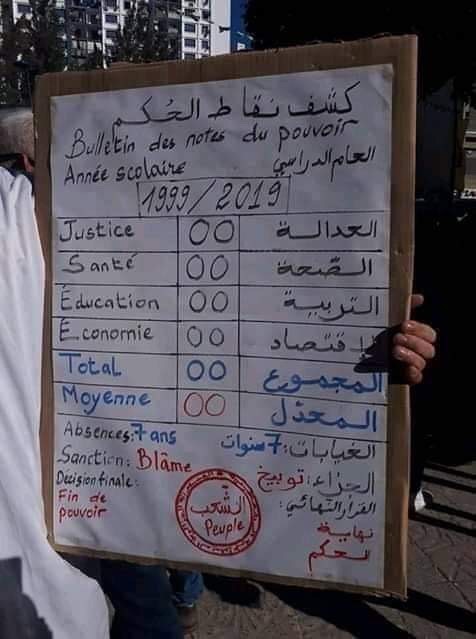 كشف نقاط الحُكم
Bulletin des notes du pouvoir
Année scolaire العام الدراسي
1999/2019
Justice 00 العدالـة
Santé 00 الصّحة
Éducation 00 التربيـة
Économie 00 الإقتصاد
Total 00 المجموع
Moyenne 00 المعدّل
Absences: 7 ans الغيابات: 7 سنوات
Sanction: Blâme الجزاء: توبيخ
Décision finale: القرار النهائي:
Fin de نهاية
pouvoir الحكم
الشّعب
Peuple